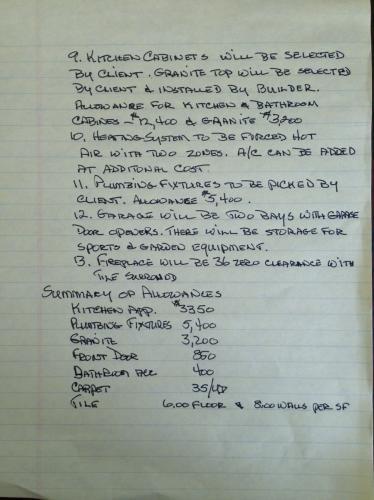 9. KITCHEN CABINETS WILL BE SELECTED
BY CLIENT. GRANITE TOP WILL BE SELECTED
BY CLIENT & INSTALLED BY BUILDER.
ALLOWANCE FOR KITCHEN & BATHROOM
CABINES - $12,400 & GRANITE $3,200
10. HEATING SYSTEM TO BE FORCED HOT
AIR WITH TWO ZONES. A/C CAN BE ADDED
AT ADDITONAL COST.
11. PLUMBING FIXTURES TO BE PICKED BY
CLIENT. ALLOWANCE $5,400.
12. GARAGE WILL BE TWO BAYS WITH GARAGE
DOOR OPENERS. THERE WILL BE STORAGE FOR
SPORTS & GARDEN EQUIPMENT.
13. FIREPLACE WILL BE 36 ZERO CLEARANCE WITH
TILE SURROND
SUMMARY OF ALLOWANCES
KITCHEN APP. $3350
PLUMBING FIXTURES 5,400
GRANITE 3,200
FRONT DOOR 850
BATHROOM ACC 400
CARPET 35/YD
TILE 6.00 FLOOR & 8.00 WALLS PER SF